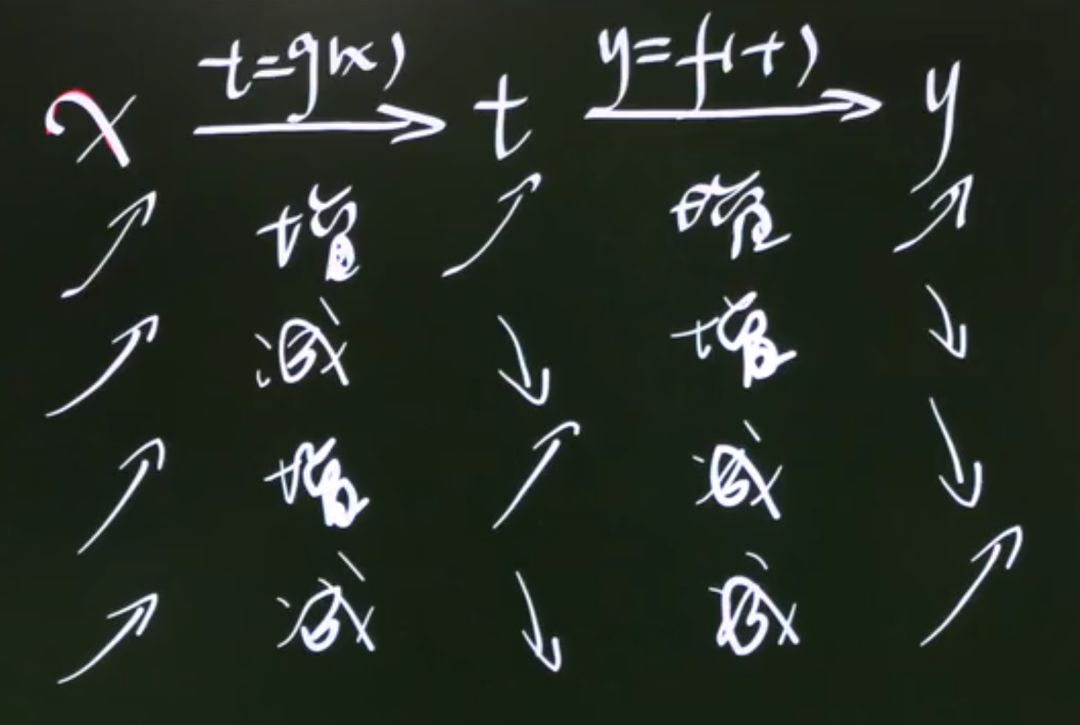 x t=g(x) t y=f(t) y
↗ 增 ↗ 增 ↗
↗ 减 ↘ 增 ↘
↗ 增 ↗ 减 ↘
↗ 减 ↘ 减 ↗